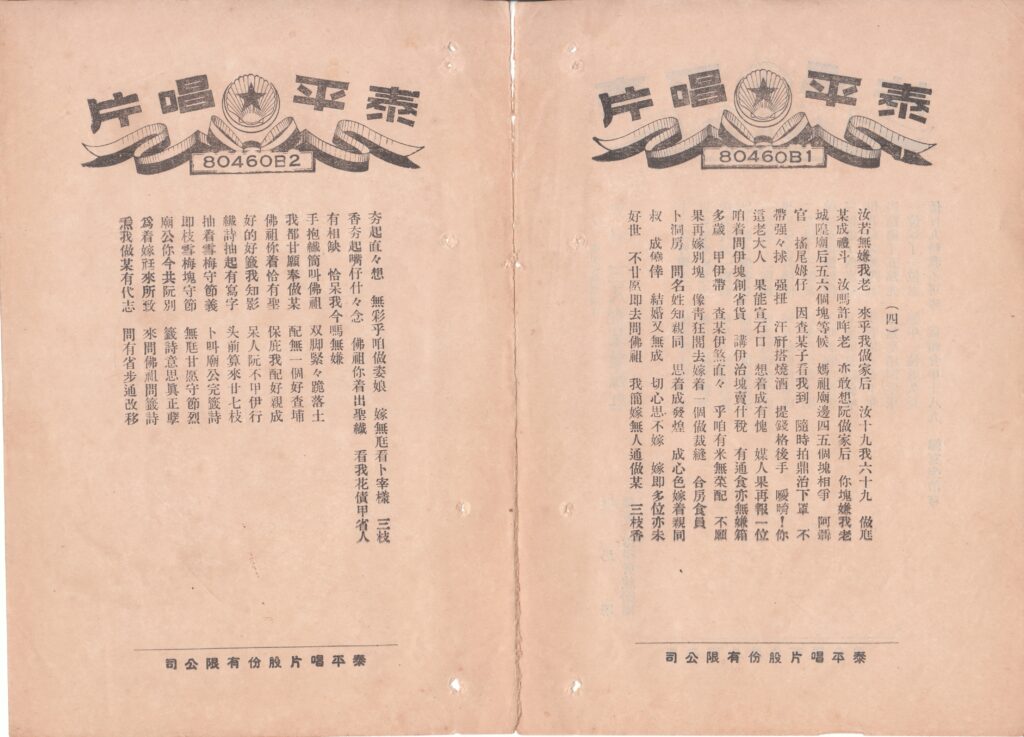 泰平唱片
80460B1
(四)
汝若無嫌我老 來乎我做家后 汝十九我六十九 做尫
某成禮斗 汝嗎許呣老 亦敢想阮做家后 你塊嫌我老
城隍廟后五六個塊等候 媽祖廟邊四五個塊相爭 阿舅
官 搖尾姆仔 因查某子看我到 隨時拍鼎治下罩 不
帶强々捄 强扭 汗酐搭燒酒 提錢格後手 噯唷！你
這老大人 果能宣石口 想着成有愧 媒人果再報一位
咱着問伊塊創省貨 講伊治塊賣什稅 有通食亦無嫌箱
多歲 甲伊帶 查某伊煞直々 乎咱有米無菜配 不願
果再嫁別塊 像青狂閙去嫁着一個做裁縫 合房食員
卜洞房 問名姓知親同 思着成發煌 成心色嫁着親同
叔 成僥倖 結婚又無成 切心思不嫁 嫁即多位亦未
好世 不甘愿即去問佛祖 我簡嫁無人通做某 三枝香
泰平唱片股份有限公司
泰平唱片
80460B2
夯起直々想 無彩乎咱做姿娘 嫁無尫看卜宰樣 三枝
香夯起嘴仔什々念 佛祖你着出聖籤 看我花債甲省人
有相缺 恰呆我今嗎無嫌
手抱籤筒叫佛祖 双脚緊々跪落土
我都甘願奉做某 配無一個好查埔
佛祖你着恰有聖 保庇我配好親成
好的好籤我知影 呆人阮不甲伊行
籤詩抽起有寫字 头前算來廿七枝
抽着雪梅守節義 卜叫廟公完籤詩
即枝雪梅塊守節 無尫甘愿守節烈
廟公你今共阮別 籤詩意思眞正孽
爲着嫁尫來所致 來問佛祖問籤詩
我做某有代志 問有省步通改移
泰平唱片股份有限公司